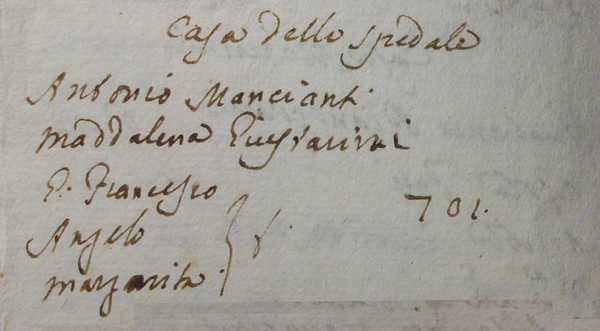 Casa dello Spedale
Antonio Mancianti
Maddalena
P. Francesco
Angelo
Margarita
f.
701.